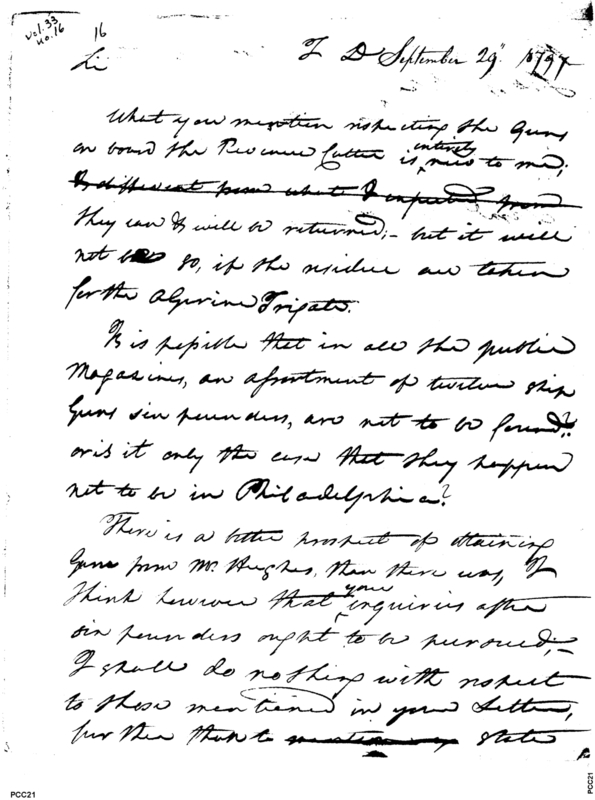 Vol. 33
no. 16
16
T D September 29th 1797
Sir
What you mention respecting the Guns
on board the Revenue Cutter is entirely new to me;
& different from what I expected from
they can & will be returned;- but it will
not be so, if the residue are taken
for the Algerine Frigate.
Is it possible that in all the public
Magazines, an assortment of twelve ship
Guns six pounders, are not to be found?
or is it only the case that they happen
not to be in Philadelphia?
There is a better prospect of obtaining
Guns from Mr. Hughes, than there was, I
think however that your inquiries after
six pounders ought to be pursued;-
I shall do nothing with respect
to those mentioned in your Letter,
further than to state
PCC21
PCC21